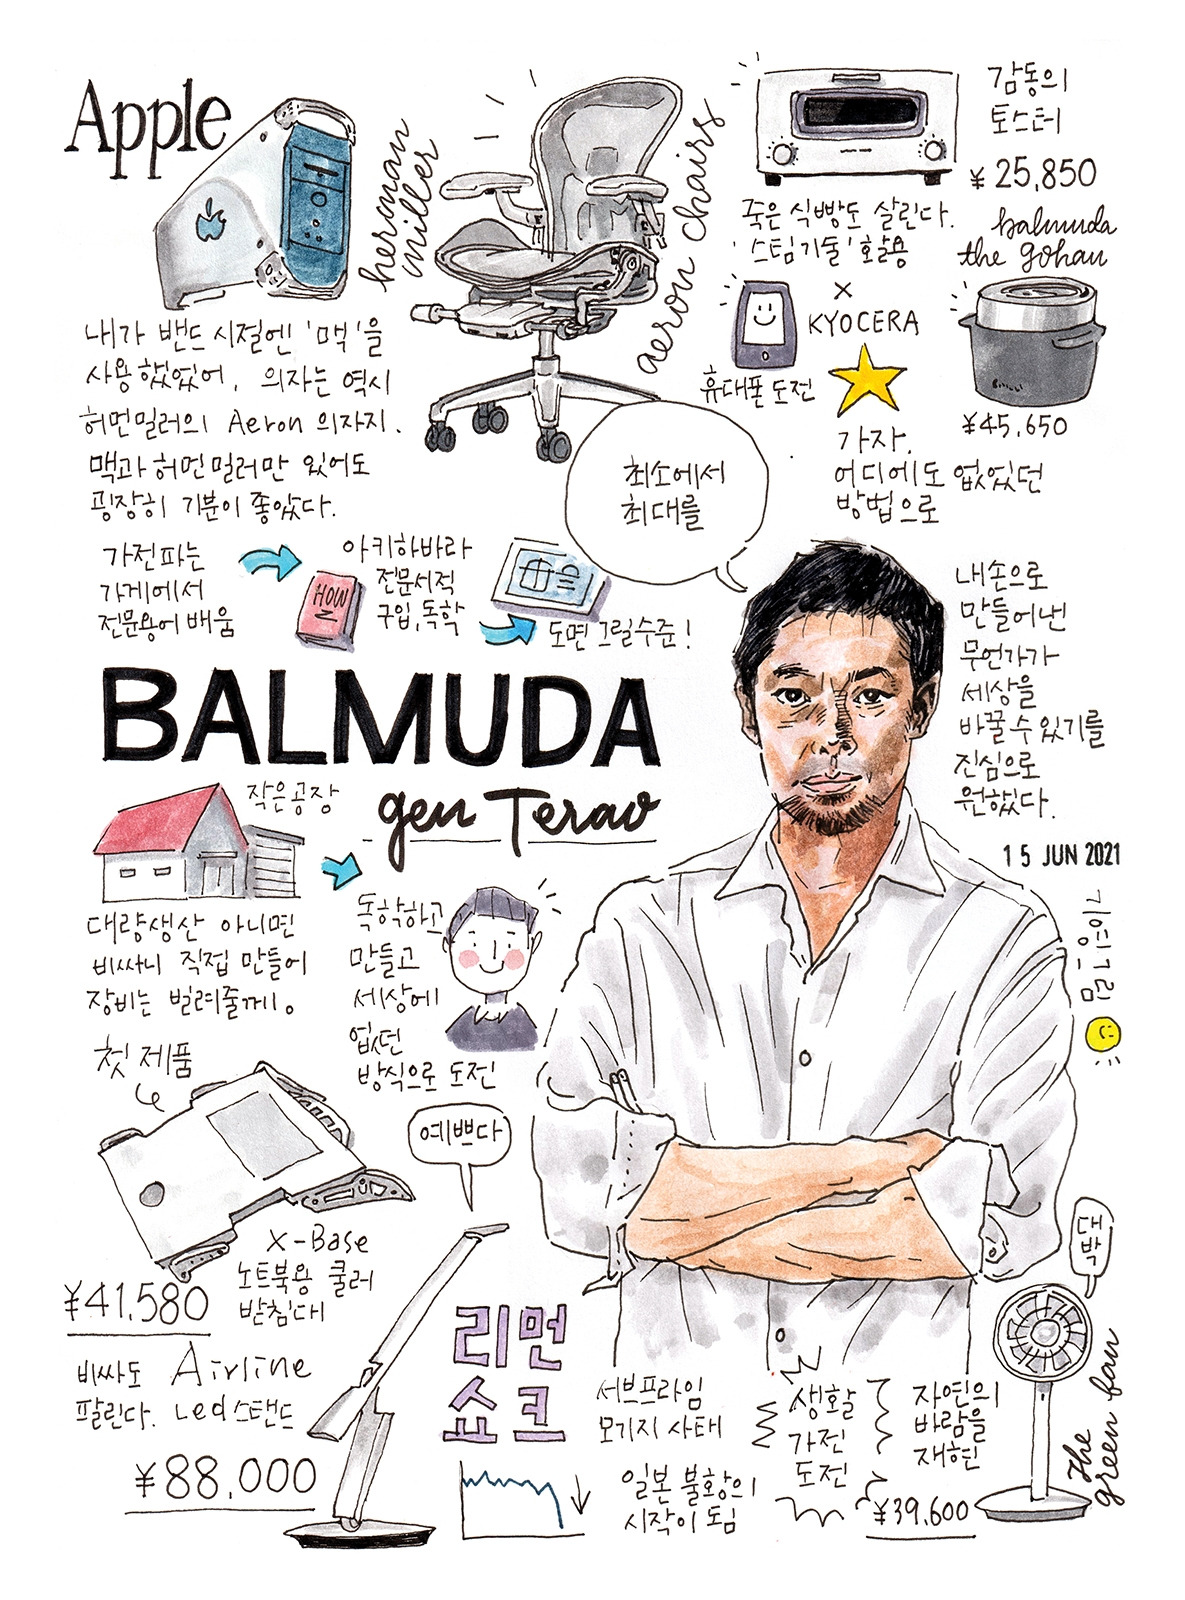 Apple
herman
miller
aeron chairs
감동의
토스터
¥25,850
죽은 식빵도 살린다.
'스팀기술' 활용
balmuda
the gohan
x
KYOCERA
휴대폰 도전
¥45,650
가자.
어디에도 없었던
방법으로
내가 밴드 시절엔 '맥'을
사용했었어. 의자는 역시
허먼밀러의 Aeron 의자지.
맥과 허먼밀러만 있어도
굉장히 기분이 좋았다.
최소에서
최대를
가전파는
가게에서
전문용어 배움
HOW
아키하바라
전문서적
구입, 독학
도면 그릴수준!
BALMUDA
gen Terao
내손으로
만들어낸
무언가가
세상을
바꿀 수 있기를
진심으로
원했다.
15 JUN 2021
작은공장
대량생산 아니면
비싸니 직접 만들어
장비는 빌려줄께.
독학하고
만들고
세상에
없던
방식으로 도전
첫 제품
예쁘다
X-Base
노트북용 쿨러
받침대
¥41,580
비싸도 Airline
팔린다. Led스탠드
¥88,000
리먼
쇼크
서브프라임
모기지 사태
일본 불황의
시작이 됨
생활
가전
도전
자연의
바람을
재현
¥39,600
대
박
The
green fan